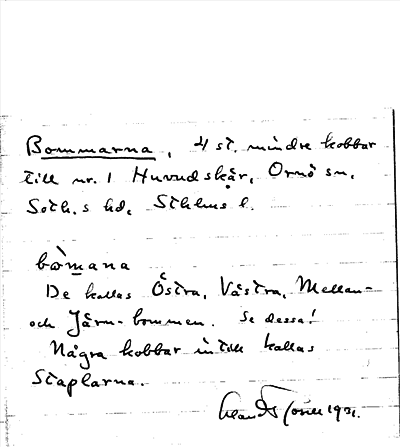 Bommarna, 4 st. mindre kobbar
till nr. 1 Huvudskär, Ornö sn.
Soth.s hd. Sthlms l.
bòm̲ana
De kallas Östra, Västra, Mellan-
och Järn-bommen. Se dessa!
Några kobbar intill kallas
Staplarna.
1931.